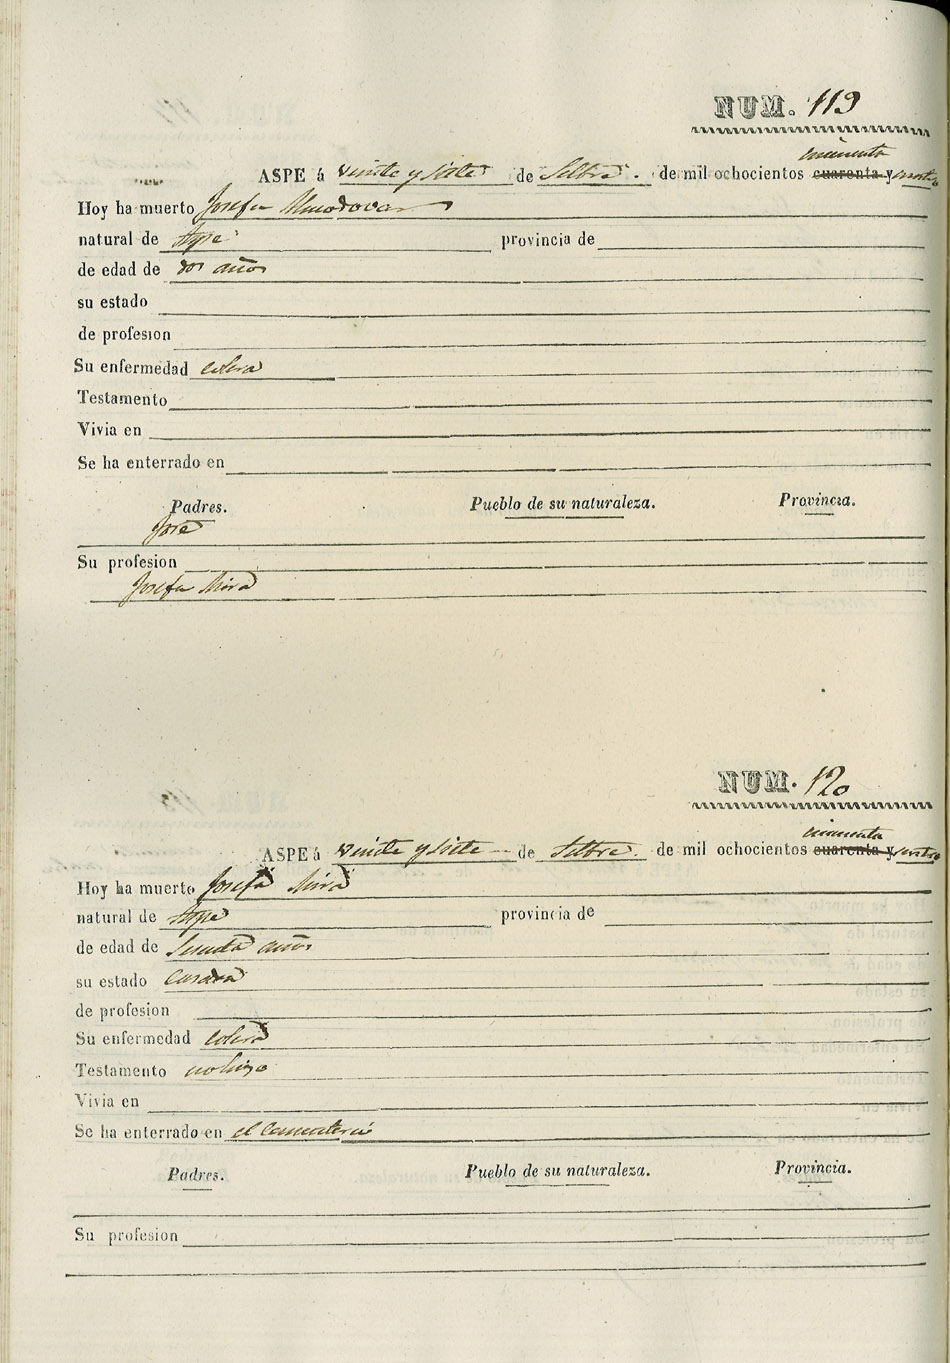 NUM. 119
cincuenta
ASPE á veinte y siete de Setbre. de mil ochocientos cuarenta y cuatro
Hoy ha muerto Josefa Almodovar
natural de Aspe provincia de
de edad de dos años
su estado
de profesion
Su enfermedad colera
Testamento
Vivia en
Se ha enterrado en
Padres. Pueblo de su naturaleza. Provincia.
José
Su profesion
Josefa Mira
NUM. 120
cincuenta
ASPE á veinte y siete de Setbre. de mil ochocientos cuarenta y cuatro
Hoy ha muerto Josefa Mira
natural de Aspe
provincia de
de edad de años
su estado Casada
de profesion
Su enfermedad colera
Testamento no hizo
Vivia en
Se ha enterrado en el Cementerio
Padres. Pueblo de su naturaleza. Provincia.
Su profesion